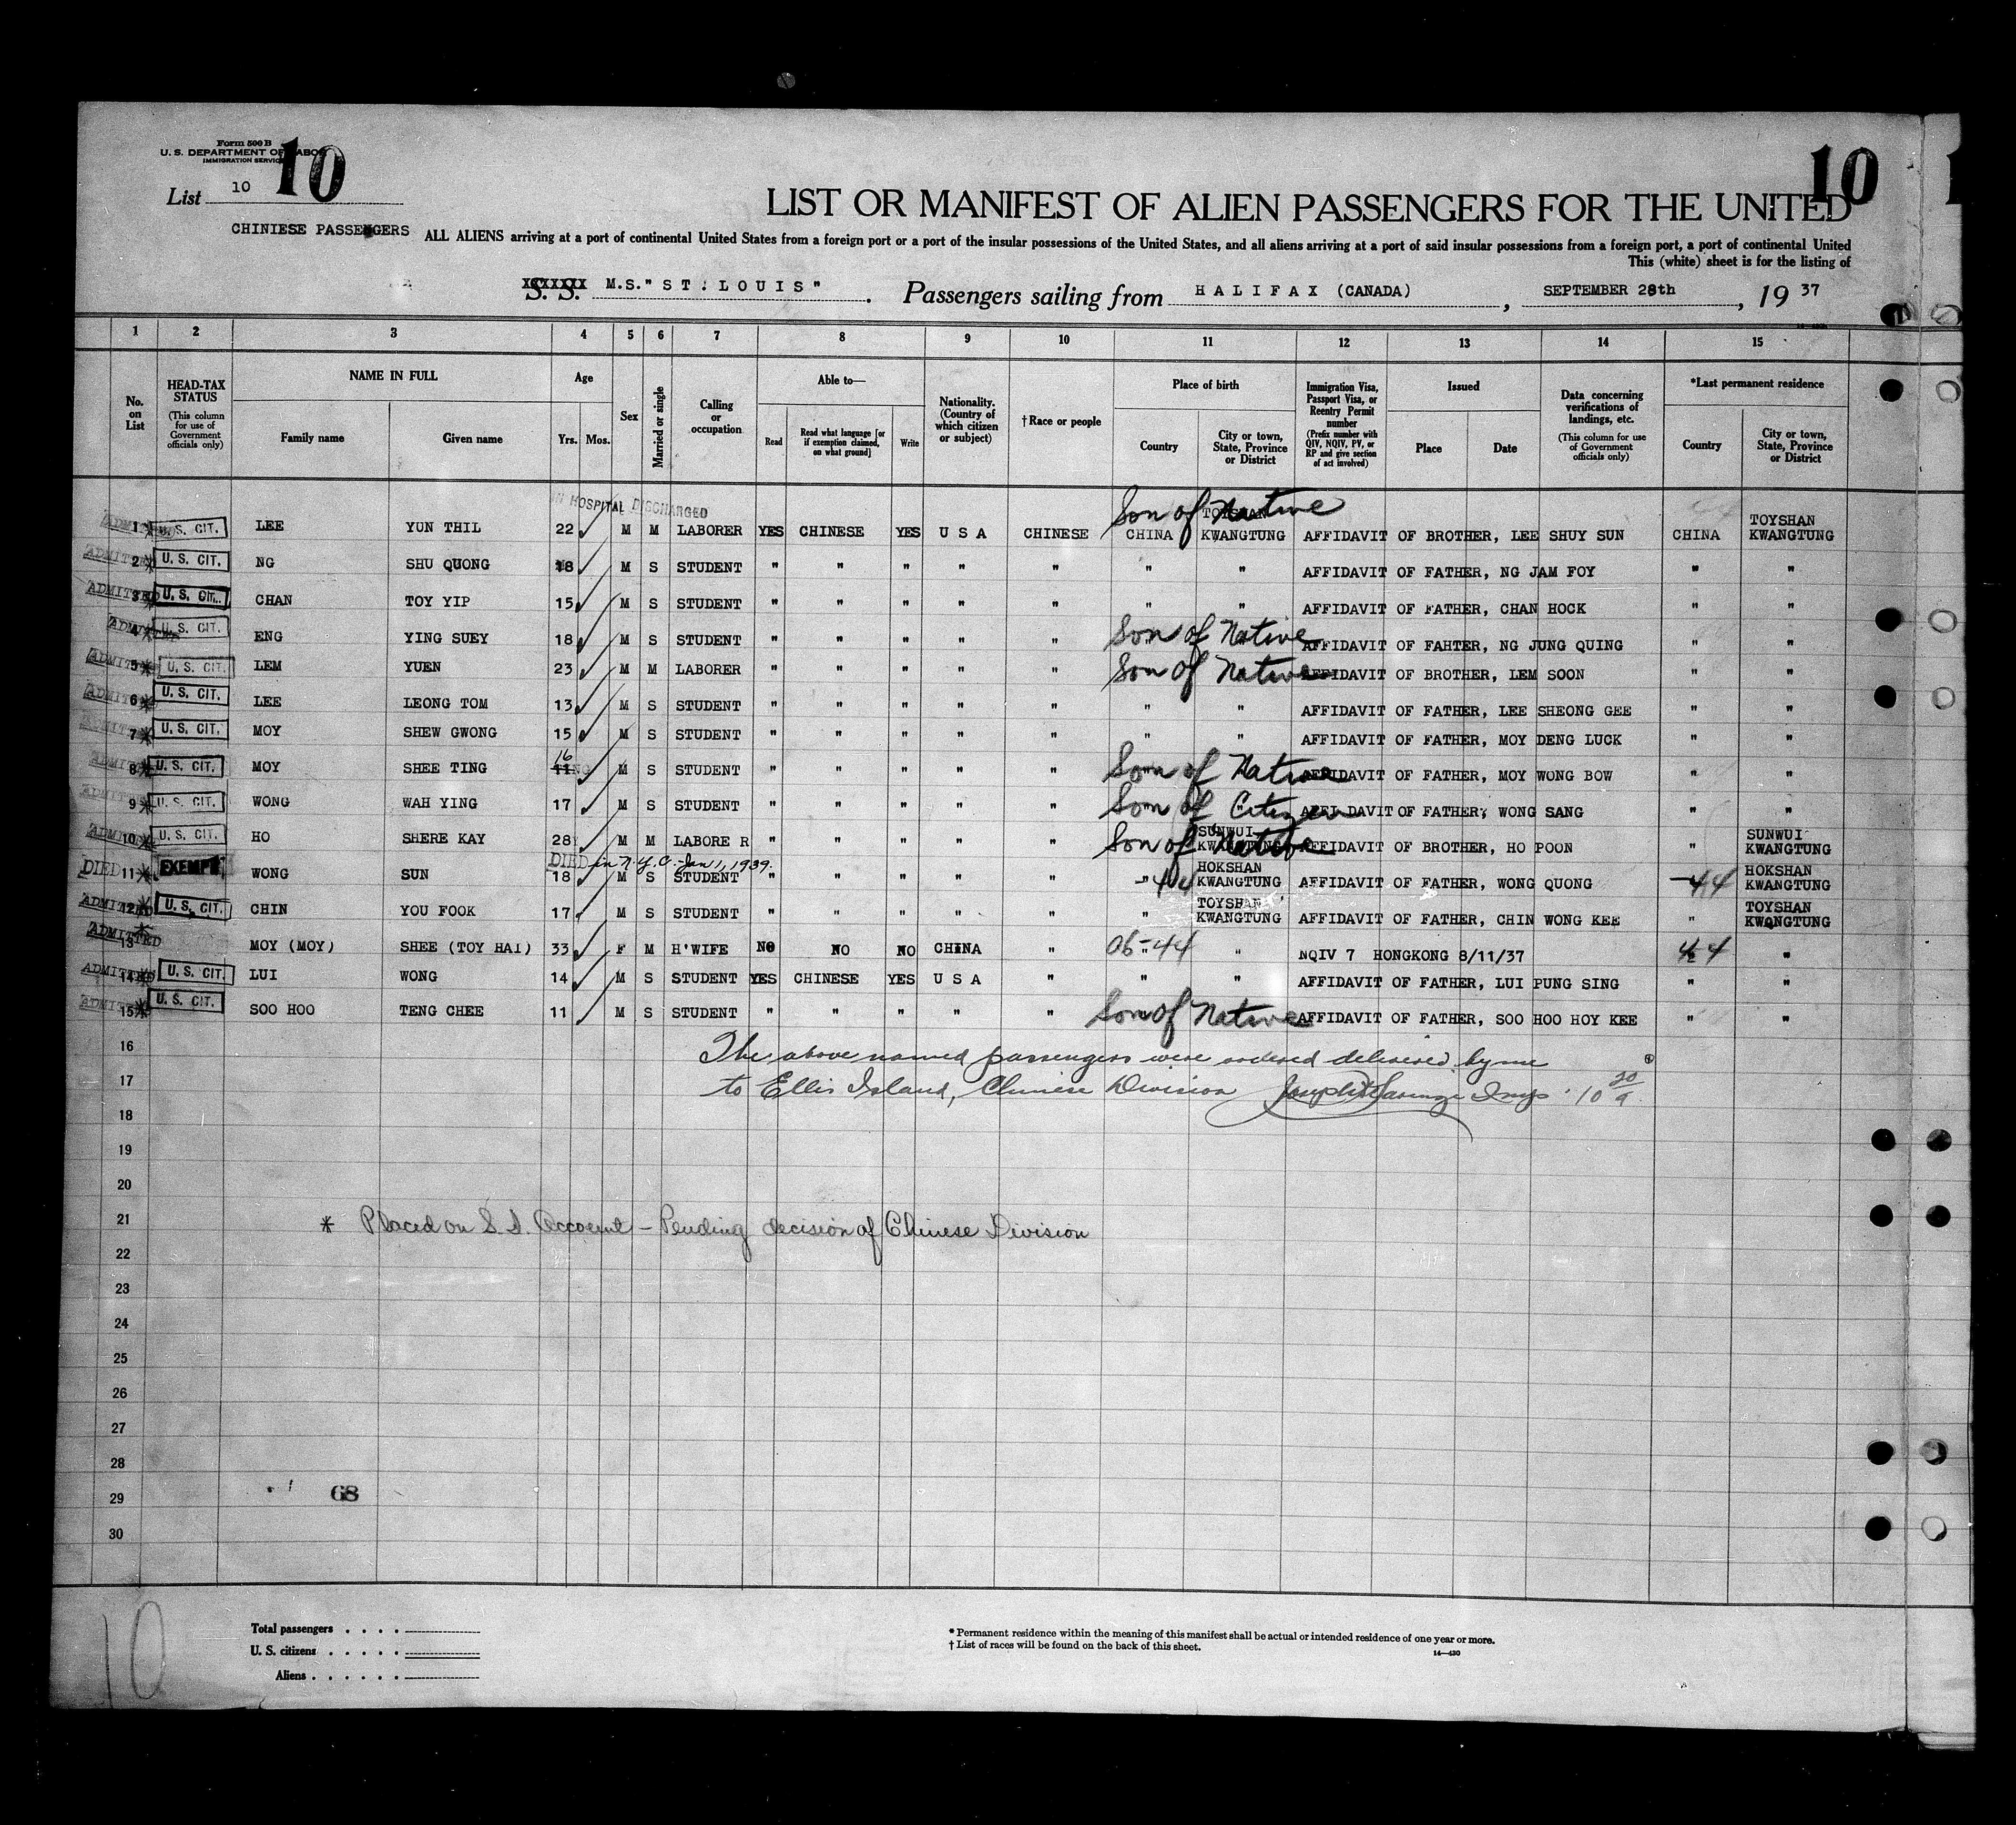 Form 500 B
U. S. DEPARTMENT OF LABOR
IMMIGRATION SERVICE
10
10
List 10
LIST OR MANIFEST OF ALIEN PASSENGERS FOR THE UNITED
CHINIESE PASSENGERS
ALL ALIENS arriving at a port of continental United States from a foreign port or a port of the insular possessions of the United States, and all aliens arriving at a port of said insular possessions from a foreign port, a port of continental United
This (white) sheet is for the listing of
S. S. M.S. "ST. LOUIS" Passengers sailing from HALIFAX (CANADA), SEPTEMBER 28th, 19 37
1 2 3 4 5 6 7 8 9 10 11 12 13 14 15
No. on List
HEAD-TAX STATUS
(This column for use of Government officials only)
NAME IN FULL
Family name
Given name
Age
Yrs. Mos.
Sex
Married or single
Calling or occupation
Able to—
Read
Read what language [or if exemption claimed, on what ground]
Write
Nationality. (Country of which citizen or subject)
† Race or people
Place of birth
Country
City or town, State, Province or District
Immigration Visa, Passport Visa, or Reentry Permit number
(Prefix number with QIV, NQIV, PV, or RP and give section of act involved)
Issued
Place
Date
Data concerning verifications of landings, etc.
(This column for use of Government officials only)
*Last permanent residence
Country
City or town, State, Province or District
IN HOSPITAL DISCHARGED
ADMITTED 1 U. S. CIT. LEE YUN THIL 22 M M LABORER YES CHINESE YES U S A CHINESE Son of Native CHINA TOYSHAN KWANGTUNG AFFIDAVIT OF BROTHER, LEE SHUY SUN CHINA TOYSHAN KWANGTUNG
ADMITTED 2 * U. S. CIT. NG SHU QUONG 18 M S STUDENT " " " " " " " AFFIDAVIT OF FATHER, NG JAM FOY " "
ADMITTED 3 * U. S. CIT. CHAN TOY YIP 15 M S STUDENT " " " " " " " AFFIDAVIT OF FATHER, CHAN HOCK " "
ADMITTED 4 U. S. CIT. ENG YING SUEY 18 M S STUDENT " " " " " Son of Native AFFIDAVIT OF FAHTER, NG JUNG QUING " "
ADMITTED 5 * U. S. CIT. LEM YUEN 23 M M LABORER " " " " " Son of Native AFFIDAVIT OF BROTHER, LEM SOON " "
ADMITTED 6 * U. S. CIT. LEE LEONG TOM 13 M S STUDENT " " " " " " " AFFIDAVIT OF FATHER, LEE SHEONG GEE " "
ADMITTED 7 * U. S. CIT. MOY SHEW GWONG 15 M S STUDENT " " " " " " " AFFIDAVIT OF FATHER, MOY DENG LUCK " "
ADMITTED 8 * U. S. CIT. MOY SHEE TING 11 16 M S STUDENT " " " " " Son of Native AFFIDAVIT OF FATHER, MOY WONG BOW " "
ADMITTED 9 * U. S. CIT. WONG WAH YING 17 M S STUDENT " " " " " Son of Citizen AFFIDAVIT OF FATHER, WONG SANG " "
ADMITTED 10 * U. S. CIT. HO SHERE KAY 28 M M LABORE R " " " " " Son of Native SUNWUI KWANGTUNG AFFIDAVIT OF BROTHER, HO POON " SUNWUI KWANGTUNG
DIED in N.Y.C. - Jan 1, 1939.
DIED 11 * EXEMPT WONG SUN 18 M S STUDENT " " " " " " -44 HOKSHAN KWANGTUNG AFFIDAVIT OF FATHER, WONG QUONG -44 HOKSHAN KWANGTUNG
ADMITTED 12 * U. S. CIT. CHIN YOU FOOK 17 M S STUDENT " " " " " " TOYSHAN KWANGTUNG AFFIDAVIT OF FATHER, CHIN WONG KEE " TOYSHAN KWANGTUNG
ADMITTED 13 * MOY (MOY) SHEE (TOY HAI) 33 F M H'WIFE NO NO NO CHINA " 06-44 " " NQIV 7 HONGKONG 8/11/37 44 "
ADMITTED 14 * U. S. CIT. LUI WONG 14 M S STUDENT YES CHINESE YES U S A " " " AFFIDAVIT OF FATHER, LUI PUNG SING " "
ADMITTED 15 * U. S. CIT. SOO HOO TENG CHEE 11 M S STUDENT " " " " " Son of Native AFFIDAVIT OF FATHER, SOO HOO HOY KEE " "
16 The above named passengers were ordered delivered by me
17 to Ellis Island, Chinese Division Insp
18
19
20
21 * Placed on S. I. Account – Pending decision of Chinese Division
22
23
24
25
26
27
28
29 68
30
10
Total passengers
U. S. citizens
Aliens
* Permanent residence within the meaning of this manifest shall be actual or intended residence of one year or more.
† List of races will be found on the back of this sheet.
14—430